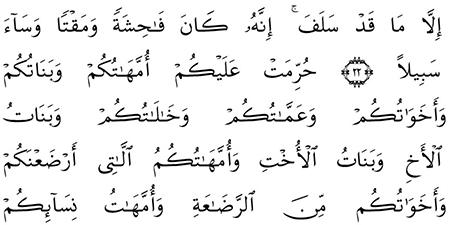 إِلَّا مَا قَدْ سَلَفَ ۚ إِنَّهُۥ كَانَ فَٰحِشَةً وَمَقْتًا وَسَآءَ
سَبِيلًا ﴿٢٢﴾ حُرِّمَتْ عَلَيْكُمْ أُمَّهَٰتُكُمْ وَبَنَاتُكُمْ
وَأَخَوَٰتُكُمْ وَعَمَّٰتُكُمْ وَخَٰلَٰتُكُمْ وَبَنَاتُ
ٱلْأَخِ وَبَنَاتُ ٱلْأُخْتِ وَأُمَّهَٰتُكُمُ ٱلَّٰتِىٓ أَرْضَعْنَكُمْ
وَأَخَوَٰتُكُم مِّنَ ٱلرَّضَٰعَةِ وَأُمَّهَٰتُ نِسَآئِكُمْ